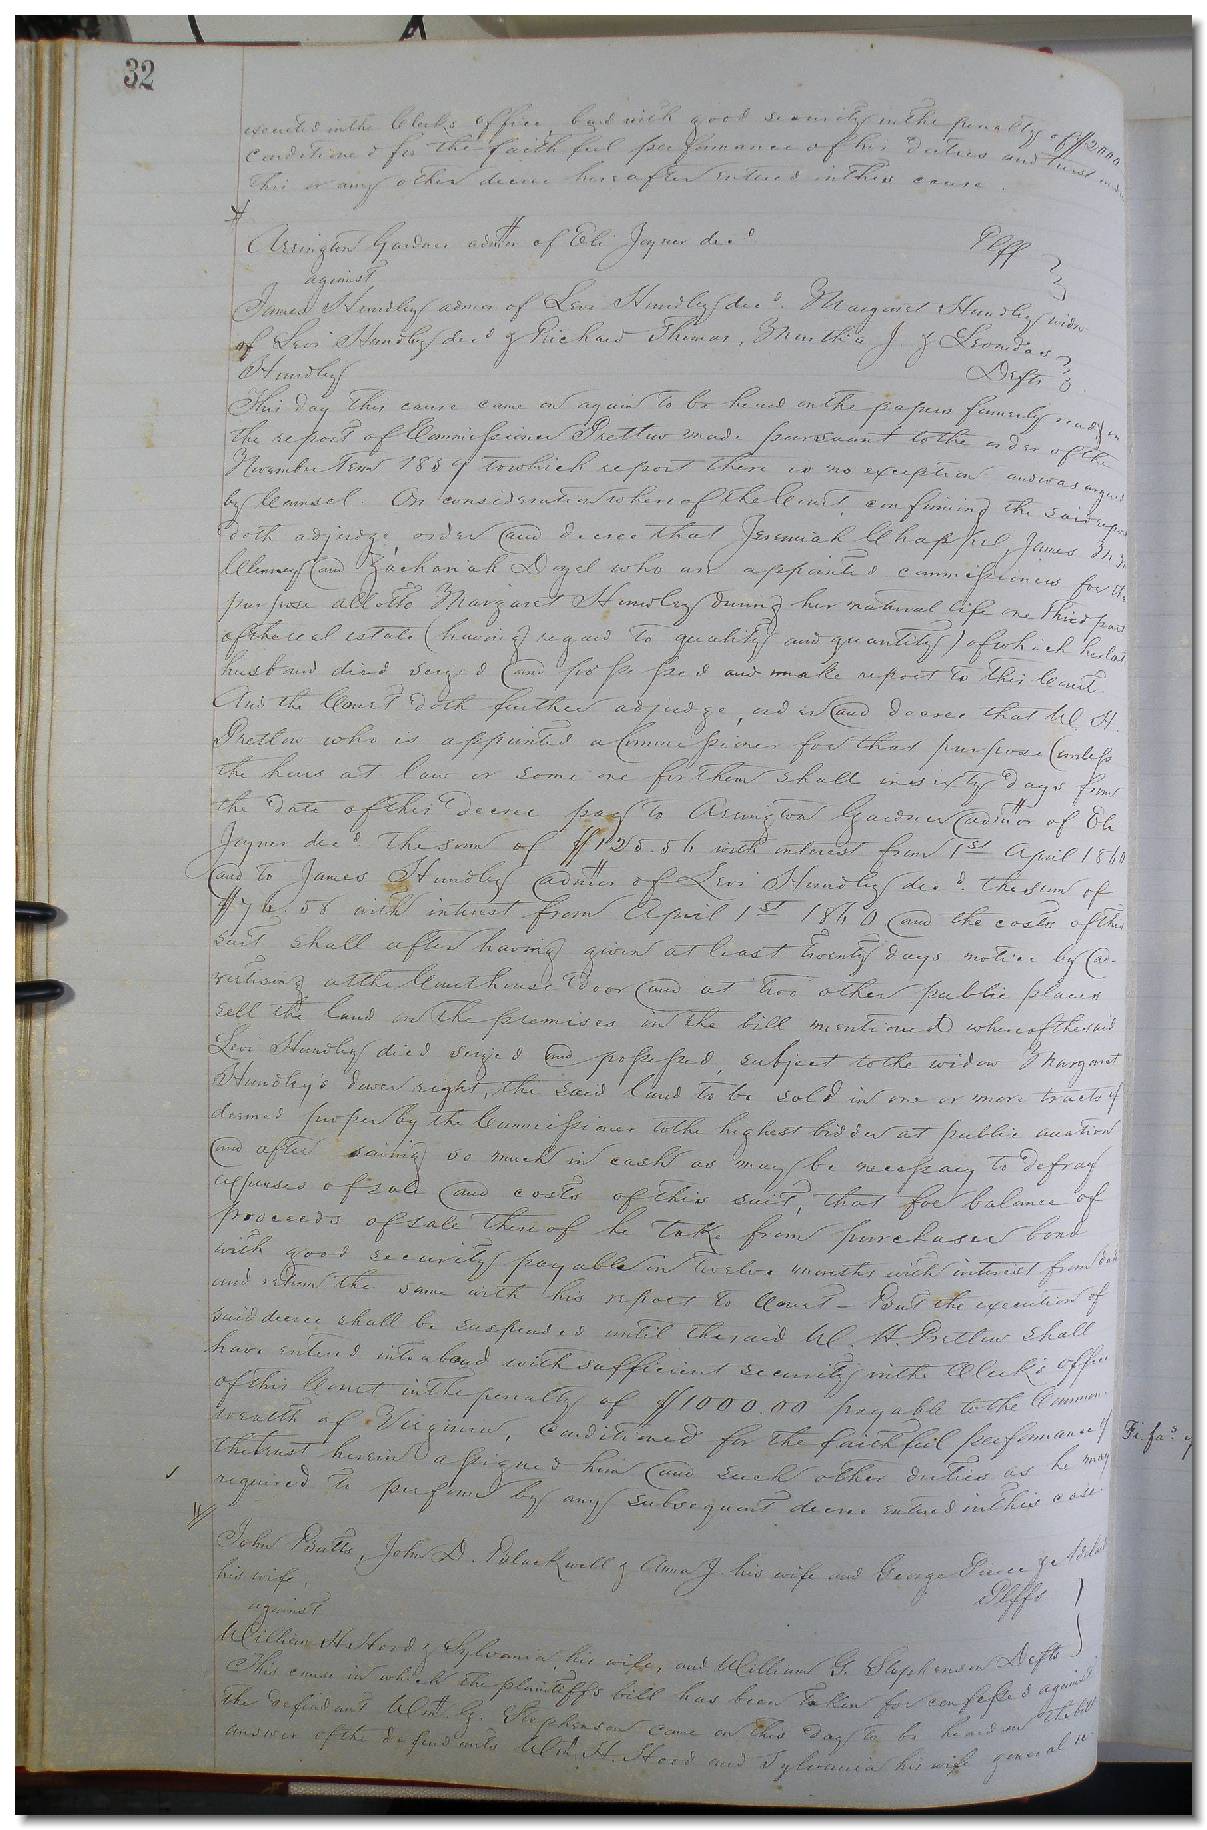 32
executed in the Clerks office, bond with good security in the penalty of $2000
conditioned for the faithful performance of his duties and trust under
this or any other decree hereafter entered in this cause.
Arrington Gardner admr of Eli Joyner decd Plff
against
James Hundley admor of Levi Hundley decd. Margaret Hundley widow
of Levi Hundley decd & Richard Thomas, Martha J. & Leonidas
Hundley Defts
This day this cause came on again to be heard on the papers formerly read, on
the report of Commissioner Pretlow made pursuant to the order of the
November Term 1859 to which report there is no exception and was argued
by Counsel. On consideration whereof the Court, confirming the said report
doth adjudge, order and decree that Jeremiah Chappel, James
and Zachariah Dayel who are appointed commissioners for the
purpose allot to Margaret Hundley during her natural life one third part
of the real estate (having regard to quality and quantity) of which her late
husband died seized and possessed and make report to this Court
And the Court doth further adjudge, order and decree that W. H.
Pretlow who is appointed a Commissioner for that purpose (unless
the heirs at law or some one for them shall in sixty days from
the date of this Decree pay to Arrington Gardner admor of Eli
Joyner decd. the sum of $125.56 with interest from 1st April 1860
and to James Hundley admor of Levi Hundley decd. the sum of
with interest from April 1st 1860 and the costs of this
suit shall after having given at least twenty days notice by ad-
vertising at the Courthouse door and at two other public places
sell the land on the premises in the bill mentioned whereof the said
Levi Hundley died seized and possessed, subject to the widow Margaret
Hundley's dower right, the said land to be sold in one or more tracts if
deemed proper by the Commissioner to the highest bidder at public auction
and after so much in cash as may be necessary to defray
expenses of sale and costs of this suit, that for balance of
proceeds of sale thereof he take from purchaser bond
with good security payable in twelve months with interest from date
and return the same with his report to Court - But the execution of
said decree shall be suspended until the said W. H. Pretlow shall
have entered into a bond with sufficient security in the Clerk's office
of this Court in the penalty of $1000.00 payable to the Common-
wealth of Virginia, conditioned for the faithful performance of
the trust herein assigned him and such other duties as he may
required to perform by any subsequent decree entered in this case.
Fi. fa.
John Butts, John D. Blackwell & Anna J. his wife and George &
his wife, Plffs
against
William H. Hood & Sylvania, his wife, and William G. Stephenson Defts
This cause in which the plaintiffs bill has been taken for confessed against
the defendant Wm. G. Stephenson came on this day to be heard on the bill
answer of the defendants Wm. H. Hood and Sylvania his wife general